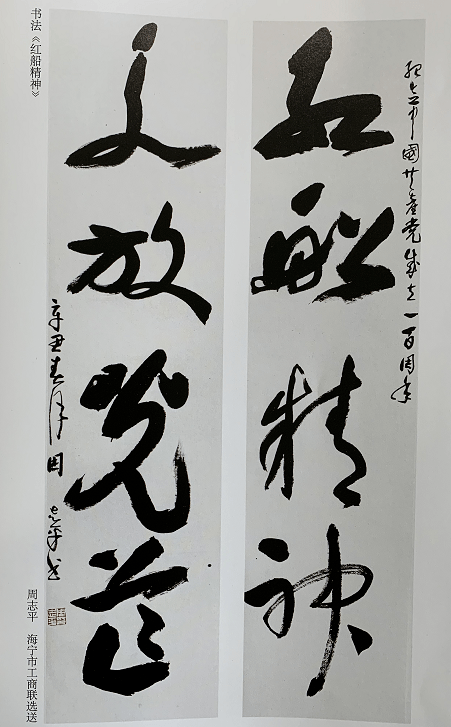 纪念中國共產党成立一百周年
红船精神
放光芒
辛丑春月周志平书
书法《红船精神》
周志平 海宁市工商联选送